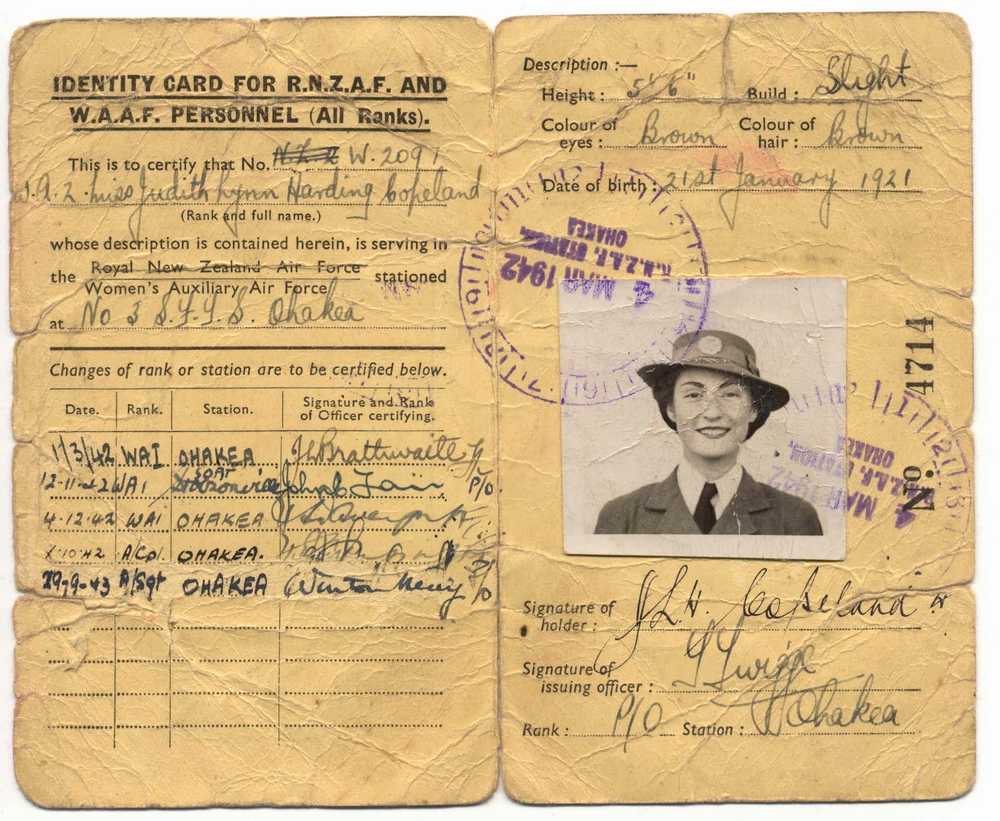 IDENTITY CARD FOR R.N.Z.A.F. AND
W.A.A.F. PERSONNEL (All Ranks).
This is to certify that No. N.Z.2 W.2091
Miss Judith Lynn Harding Copeland
(Rank and full name.)
whose description is contained herein, is serving in
the Royal New Zealand Air Force stationed
Women's Auxiliary Air Force
at No 3 S.F.T.S. Ohakea
Changes of rank or station are to be certified below.
Date. Rank. Station. Signature and Rank
of Officer certifying.
1/3/42 WAI OHAKEA
12-11-42 WAI P/O
4-12-42 WAI OHAKEA
10-42 A/Cpl. OHAKEA.
29-9-43 A/Sgt OHAKEA
Description :—
Height : 5'6" Build : Slight
Colour of eyes : Brown Colour of hair : Brown
Date of birth : 21st January 1921
R.N.Z.A.F. STATION,
OHAKEA
4 MAR 1942
No 4714
R.N.Z.A.F. STATION,
OHAKEA
4 MAR 1942
Signature of
holder : J L H. Copeland
Signature of
issuing officer :
Rank : P/O Station : Ohakea